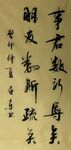 事君数斯辱矣
朋友数斯疏矣
癸卯仲夏